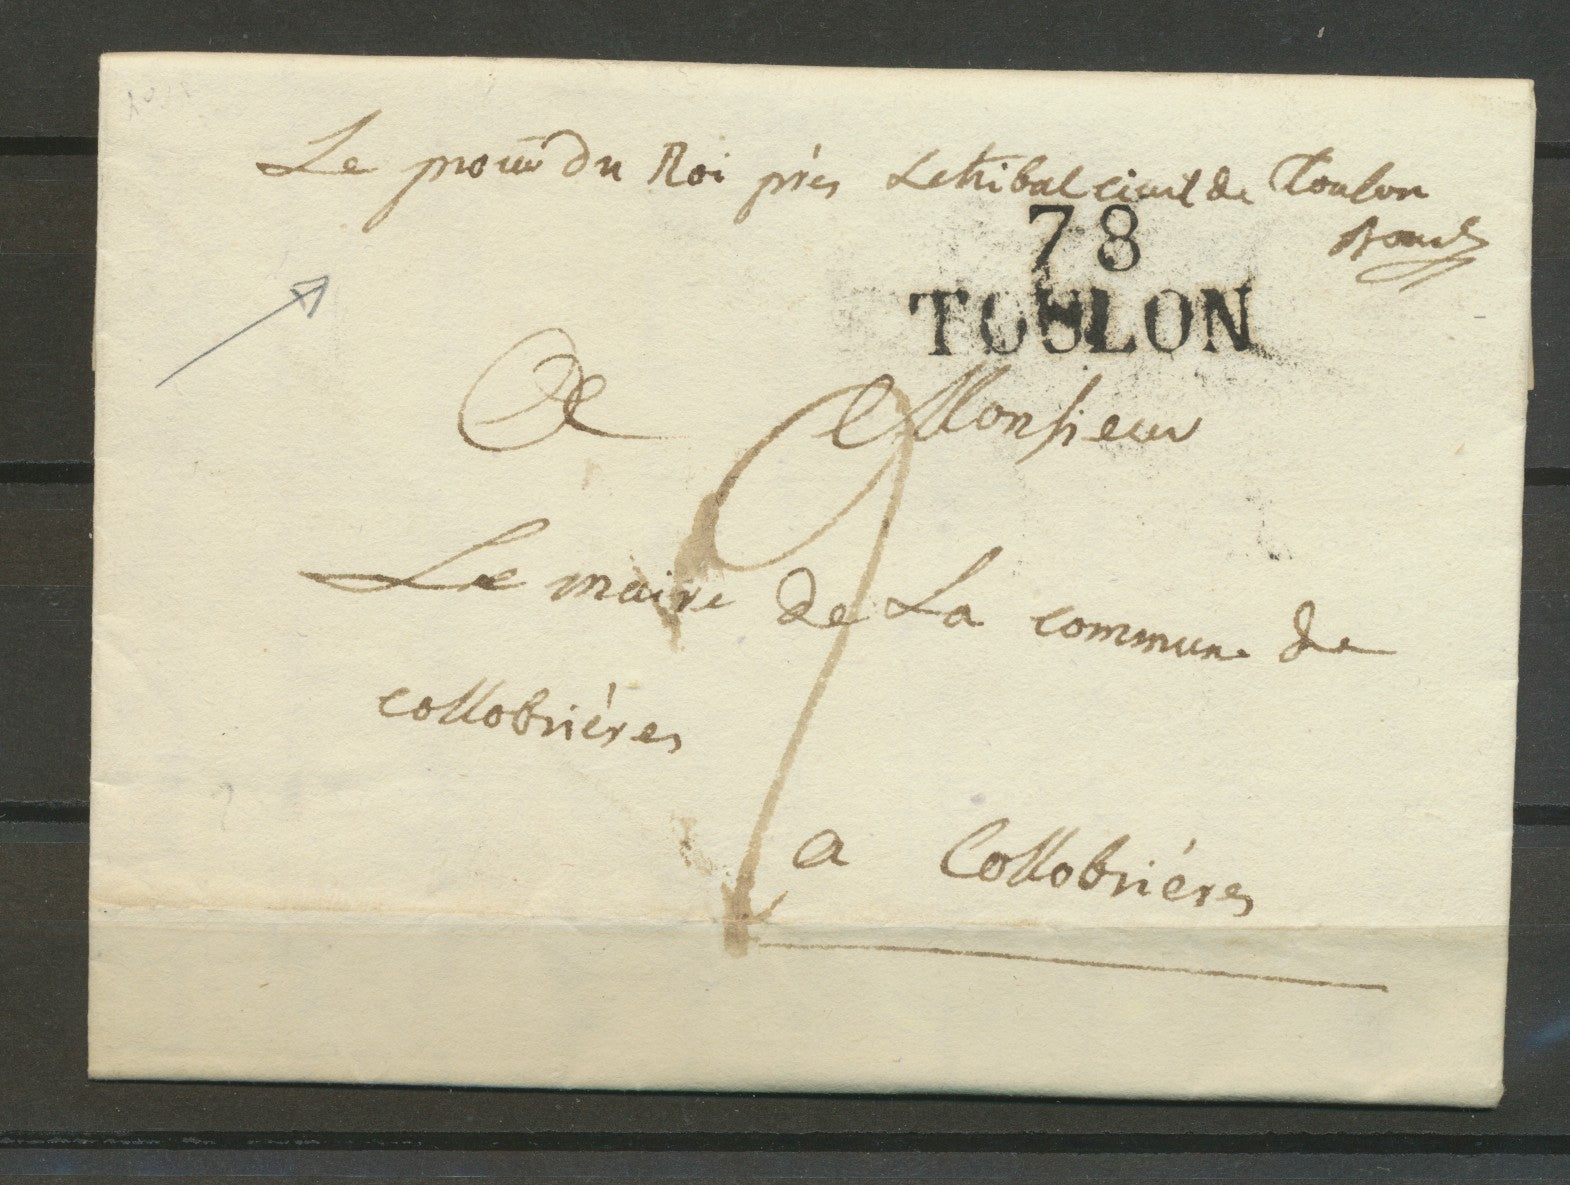 Le procur du Roi près Le tribal civil de Toulon
78
TOULON
A Monsieur
Le maire de La commune de
collobrières
a Collobrières